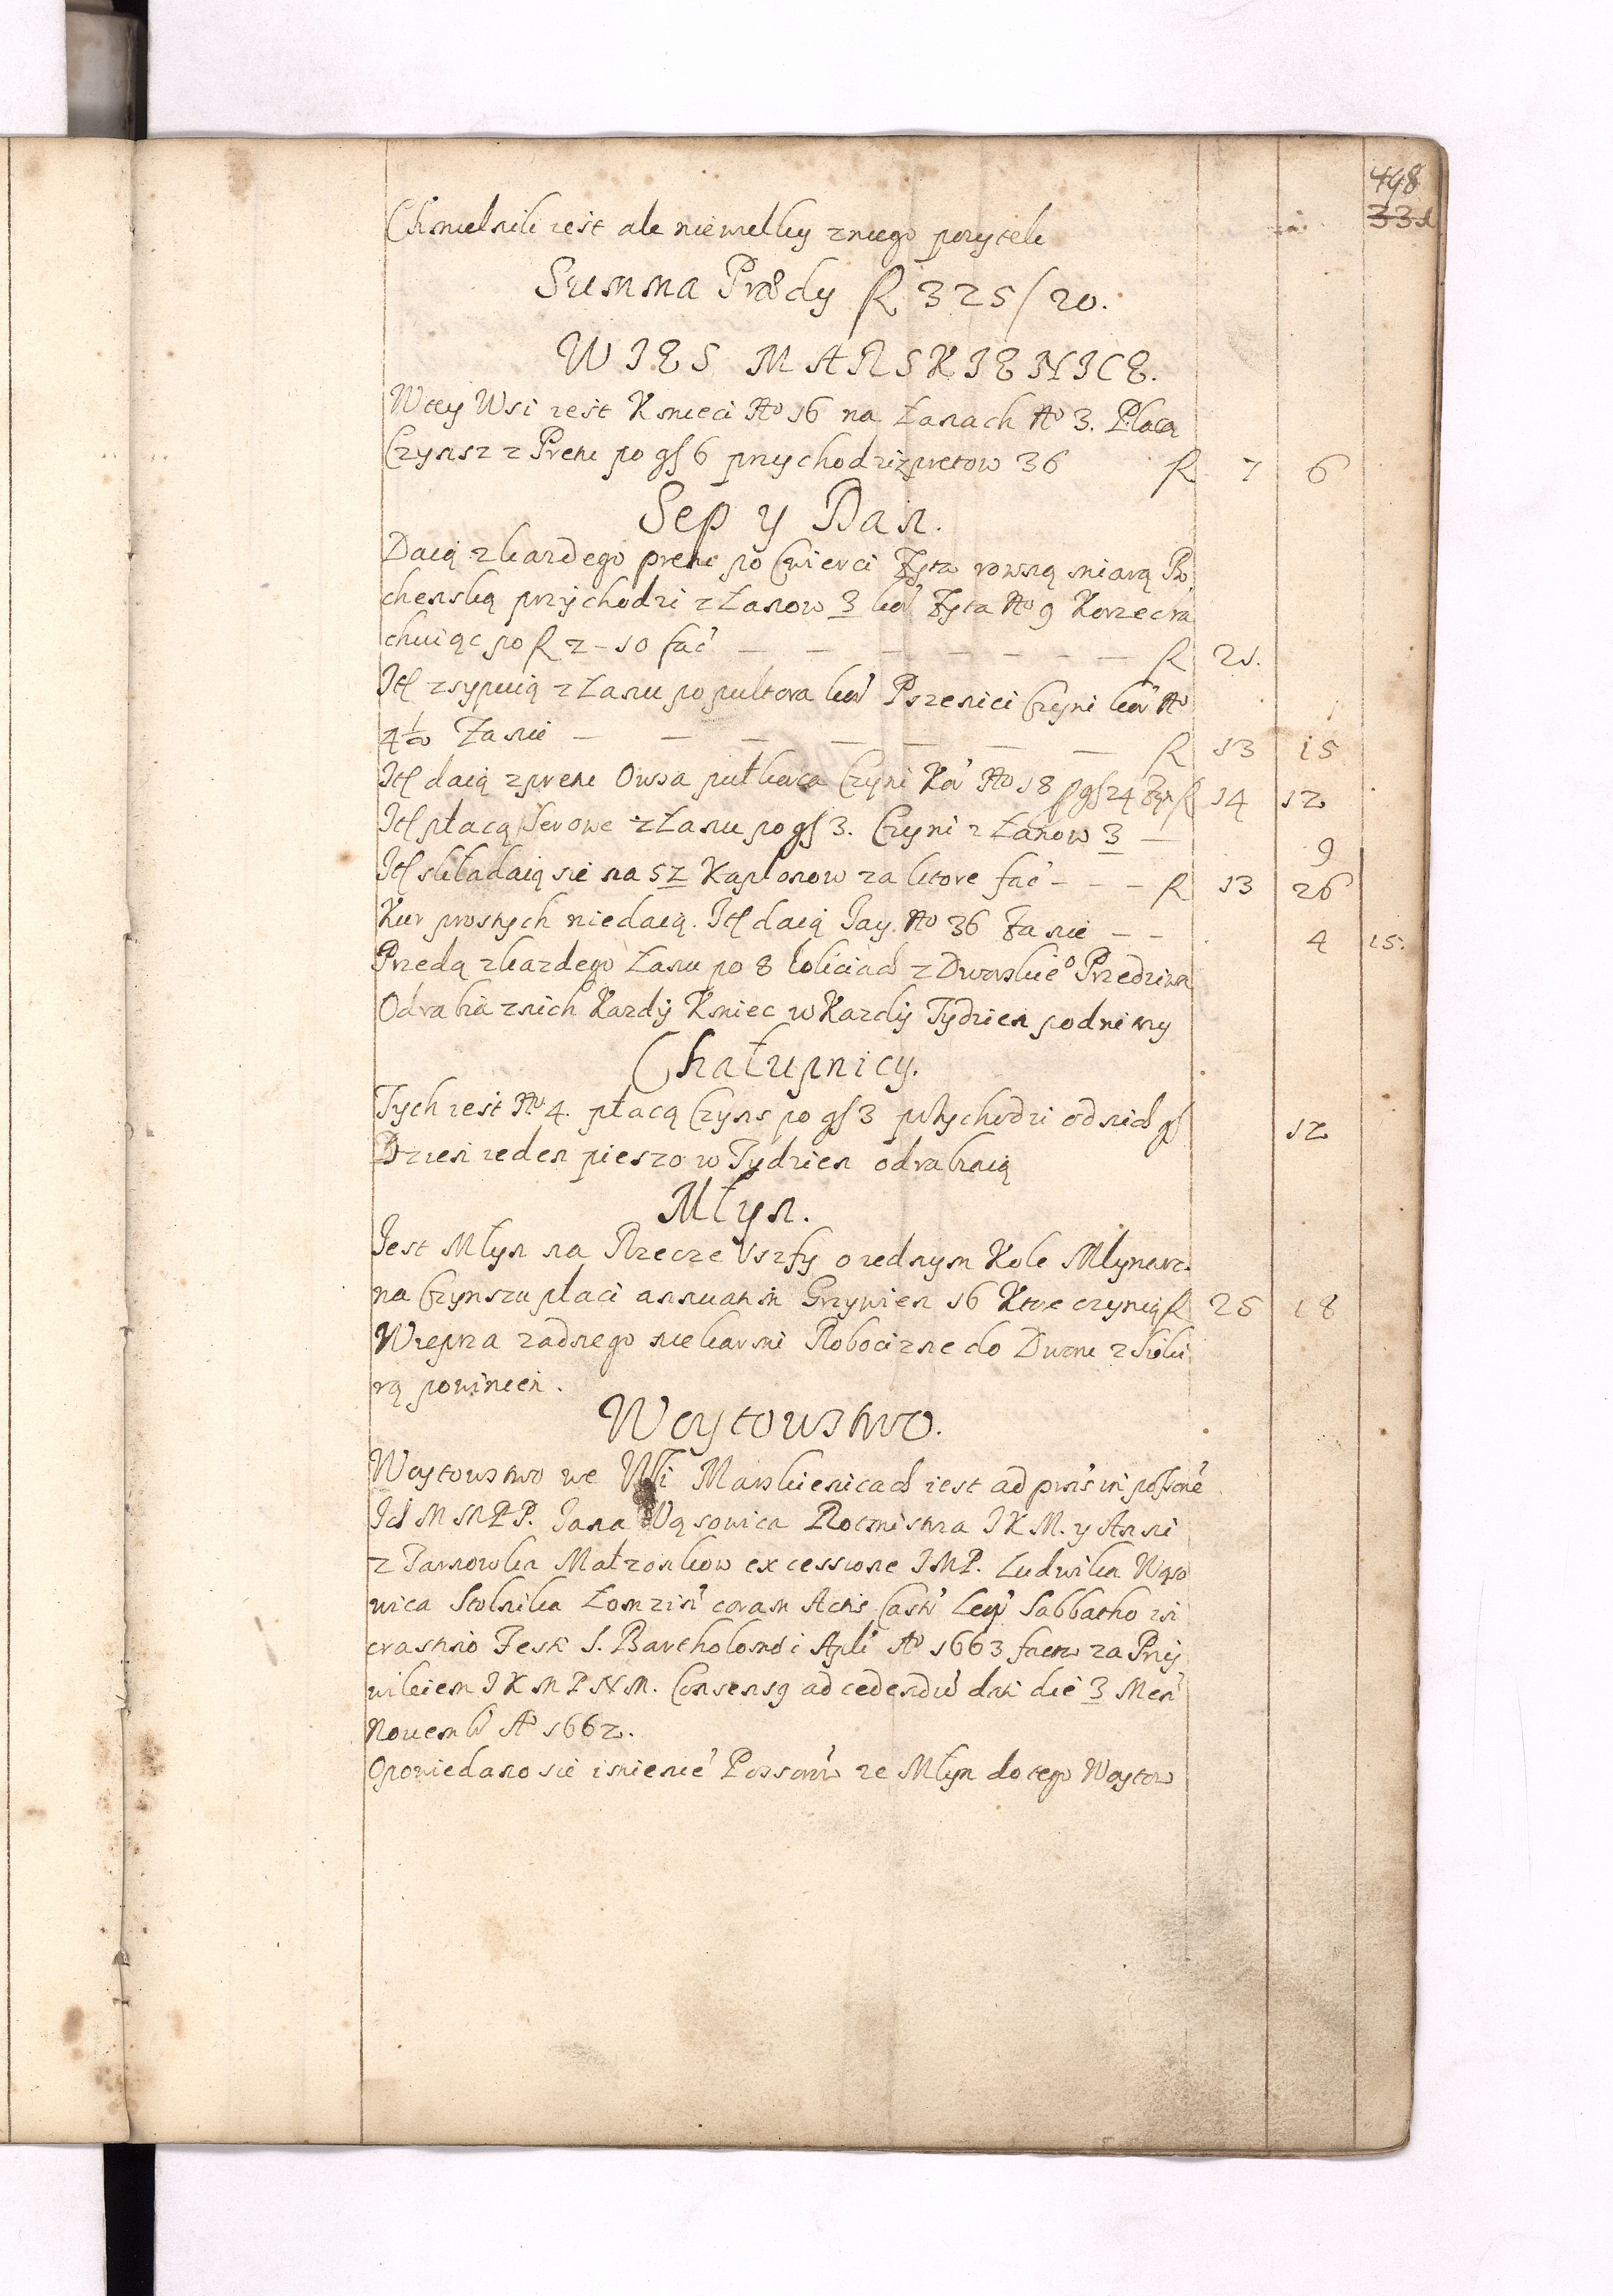 498
331
Chmielnik iest ale niewielky z niego pozytek
Summa Prdy fl 325/20.
WIES MARSKIENICE.
W tey Wsi iest Kmieci No 16 na Łanach No 3. Płacą
Czynsz z Pręta po gs 6 przychodzi z prętow 36 fl 7 6
Sep y Dan.
Daią z kazdego pręta po Cwierci Zyta rowną miarą Bo
chenską przychodzi z Łanow 3 kor Zyta No 9 Korzec ra
chuiąc po fl 2-10 fac fl 21.
Itt zsypuią z Łanu po pułtora kor Pszenici Czyni kor No
4½ Za nie fl 13 15
Itt daią z pręta Owsa pułkorca Czyni Kor No 18 p gs 24 Czyn fl 14 12
Itt płacą Serowe z Łanu po gs 3. Czyni z Łanow 3 9
Itt składaią sie na 52 Kapłonow za ktore fac fl 13 26
Kur prostych niedaią. Itt daią Jay No 36 Za nie 4 15.
Przedą z kazdego Łanu po 8 łokciach z Dworskieo Przedziwa
Odrabia z nich Kazdy Kmiec w Kazdy Tydzien podni trzy
Chałupnicy.
Tych iest No 4. płacą Czyns po gs 3 przychodzi od nich gs 12
Dzien ieden pieszo w Tydzien odrabiaią
Młyn.
Jest Młyn na Rzecze Vszfy o iednym Kole Młynarz
na Czynszu płaci annuatim Grzywien 16 Ktore czynią fl 25 18
Wieprza zadnego nie karmi Robocizne do Dworu z Siekie
rą powinien.
Woytowstwo.
Woytowstwo we Wsi Marskienicach iest ad prns in possone
Ich M M P P. Jana Wąsowica Rotmistrza J K M. y Anni
z Tarnowka Małzonkow ex cessione J M P. Ludwika Wąso
wica Stolnika Łomzin coram Actis Castr Sabbatho in
crastino Festi S. Bartholomei Apli Ao 1663 facta za Przy
wileiem J K M P N M. Consens9 ad cedendu dati die 3 Men
Novemb Ao 1662.
Opowiedano sie imienie Possorow ze Młyn do tego Woytow